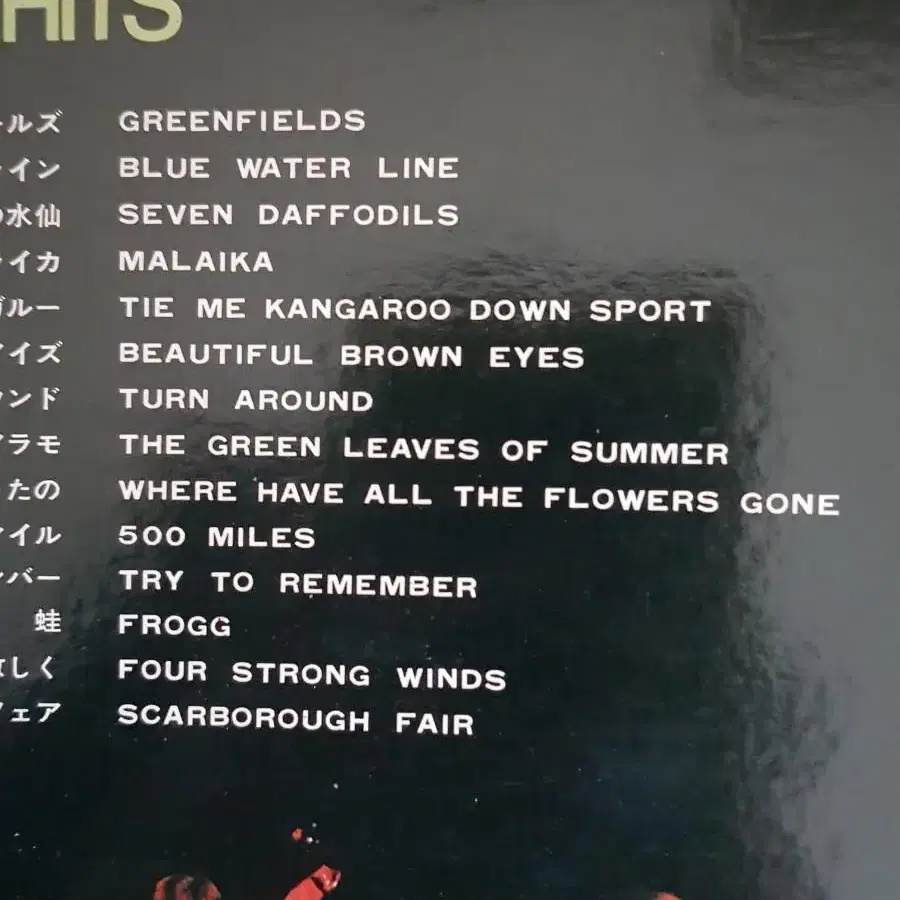 HITS
ールズ GREENFIELDS
イン BLUE WATER LINE
の水仙 SEVEN DAFFODILS
イカ MALAIKA
ガルー TIE ME KANGAROO DOWN SPORT
アイズ BEAUTIFUL BROWN EYES
ウンド TURN AROUND
アラモ THE GREEN LEAVES OF SUMMER
たの WHERE HAVE ALL THE FLOWERS GONE
マイル 500 MILES
ンバー TRY TO REMEMBER
蛙 FROGG
しく FOUR STRONG WINDS
フェア SCARBOROUGH FAIR